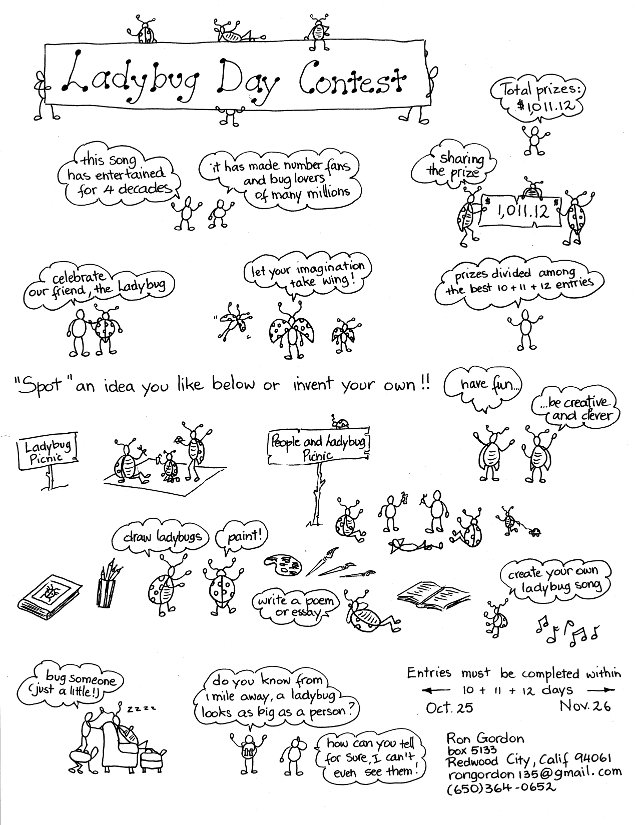 Ladybug Day Contest
Total prizes:
$1011.12
this song
has entertained
for 4 decades
it has made number fans
and bug lovers
of many millions
sharing
the prize
$ 1,011.12 $
celebrate
our friend, the Ladybug
let your imagination
take wing!
prizes divided among
the best 10 + 11 + 12 entries
"Spot" an idea you like below or invent your own!!
have fun...
...be creative
and clever
Ladybug
Picnic
People and Ladybug
Picnic
draw ladybugs
paint!
write a poem
or essay
create your own
ladybug song
bug someone
(just a little!)
zzzz
do you know from
1 mile away, a ladybug
looks as big as a person?
how can you tell
for sure, I can't
even see them!
Entries must be completed within
10 + 11 + 12 days
Oct. 25 Nov. 26
Ron Gordon
box 5133
Redwood City, Calif 94061
rongordon135@gmail.com
(650)364-0652